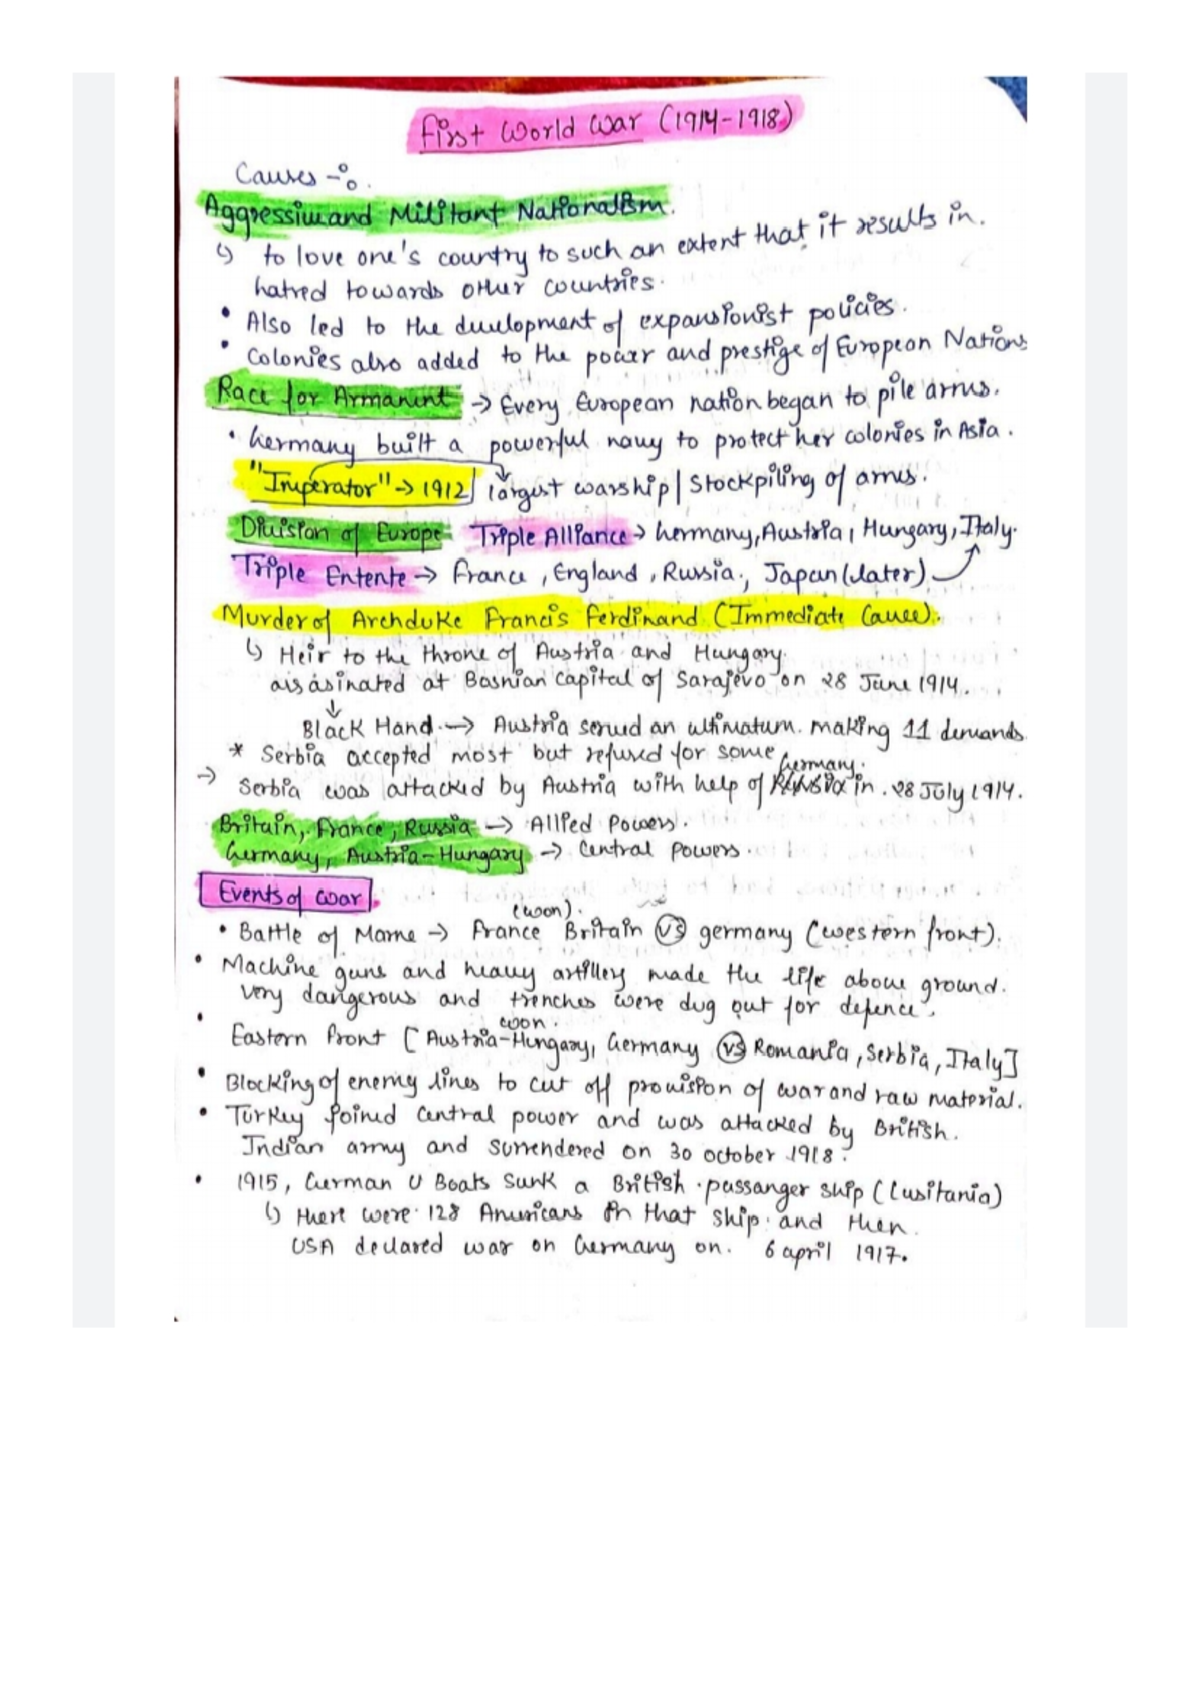 First World War (1914-1918)
Causes -:
Aggressive and Militant Nationalism.
↳ to love one's country to such an extent that it results in.
hatred towards other countries.
• Also led to the development of expansionist policies.
• Colonies also added to the power and prestige of European Nations
Race for Armamint → Every European nation began to pile arms.
• Germany built a powerful navy to protect her colonies in Asia.
"Imperator" → 1912 largest warship | Stockpiling of arms.
Division of Europe Triple Alliance → Germany, Austria, Hungary, Italy.
Triple Entente → France, England, Russia., Japan (later)
Murder of Archduke Francis Ferdinand (Immediate Cause).
↳ Heir to the throne of Austria and Hungary.
aisasinated at Bosnian Capital of Sarajevo on 28 June 1914.
↓
Black Hand → Austria served an ultimatum. making 11 demands
* Serbia accepted most but refused for some
Germany.
→ Serbia was attacked by Austria with help of Russia in. 28 July 1914.
Britain, France, Russia → Allied Powers.
Germany, Austria-Hungary → Central Powers.
Events of war
(won).
• Battle of Marne → France Britain vs germany (western front).
• Machine guns and heavy artillery made the life above ground.
very dangerous and trenches were dug out for defence.
won.
• Eastern Front [Austria-Hungary, Germany vs Romania, Serbia, Italy]
• Blocking of enemy lines to cut off provision of war and raw material.
• Turkey joined Central power and was attacked by British.
Indian army and surrendered on 30 october 1918.
• 1915, German U Boats sunk a British passanger ship (Lusitania)
↳ there were 128 Americans in that ship and then.
USA declared war on Germany on. 6 april 1917.